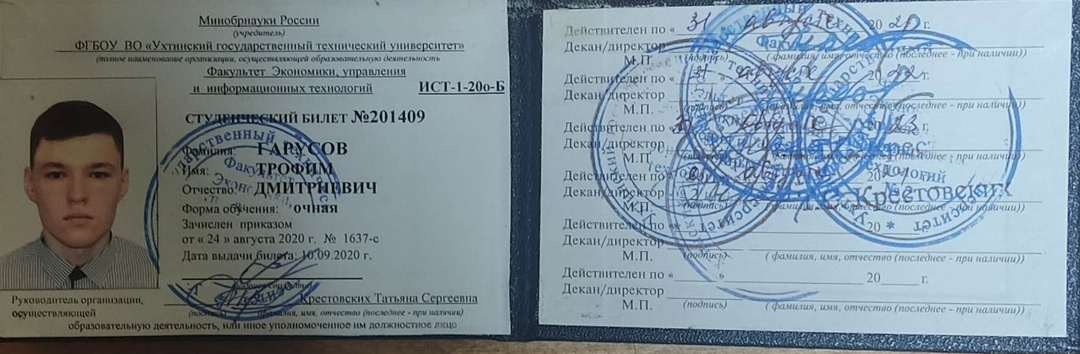 Минобрнауки России
(учредитель)
ФГБОУ ВО «Ухтинский государственный технический университет»
(полное наименование организации, осуществляющей образовательную деятельность
Факультет Экономики, управления
и информационных технологий ИСТ-1-20о-Б
СТУДЕНЧЕСКИЙ БИЛЕТ №201409
Фамилия: ГАРУСОВ
Имя: ТРОФИМ
Отчество: ДМИТРИЕВИЧ
Форма обучения: очная
Зачислен приказом
от « 24 » августа 2020 г. № 1637-с
Дата выдачи билета: 10.09.2020 г.
Руководитель организации, Крестовских Татьяна Сергеевна
осуществляющей (фамилия, имя, отчество (последнее - при наличии)
образовательную деятельность, или иное уполномоченное им должностное лицо
Действителен по « 31 августа 20 21 г.
Декан/директор
М.П. (подпись) (фамилия, имя, отчество (последнее - при наличии))
Действителен по « 31 августа 20 22 г.
Декан/директор
М.П. (фамилия, имя, отчество (последнее - при наличии))
Действителен по « 20 23 г.
Декан/директор
М.П. (фамилия, имя, отчество (последнее - при наличии))
Действителен по « 20 г.
Декан/директор Крестовских
М.П. (фамилия, имя, отчество (последнее - при наличии))
Действителен по « 20 г.
Декан/директор
М.П. (подпись) (фамилия, имя, отчество (последнее - при наличии))
Действителен по « 20 г.
Декан/директор
М.П. (подпись) (фамилия, имя, отчество (последнее - при наличии))